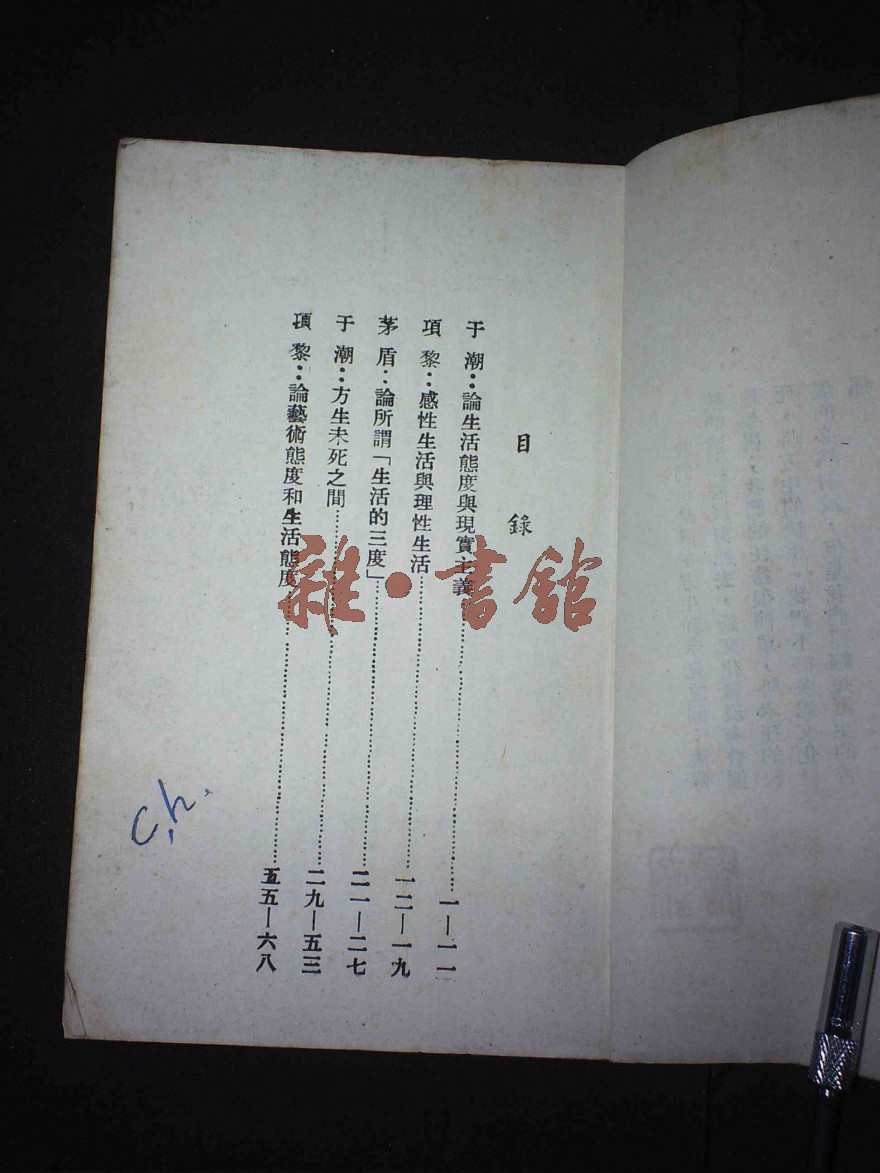 目錄
于潮：論生活態度與現實主義…………一—一一
項黎：感性生活與理性生活…………一二—一九
茅盾：論所謂「生活的三度」…………二一—二七
于潮：方生未死之間…………二九—五三
項黎：論藝術態度和生活態度…………五五—六八
雜·書館
Ch.